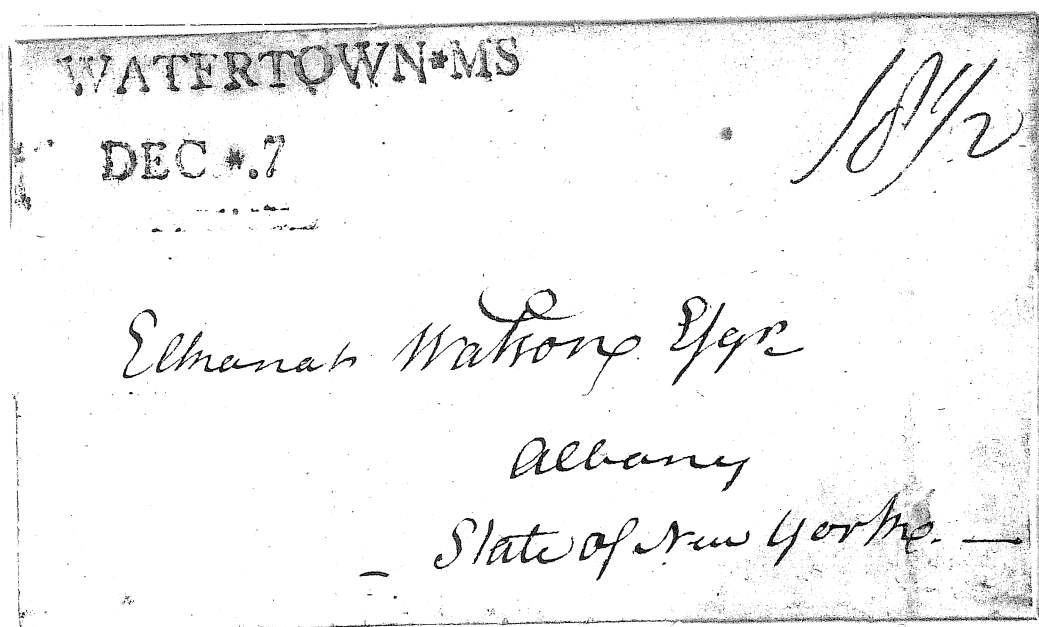 WATERTOWN*MS
18 1/2
DEC *.7
Elkanah Watson Esqr
Albany
State of New York. —